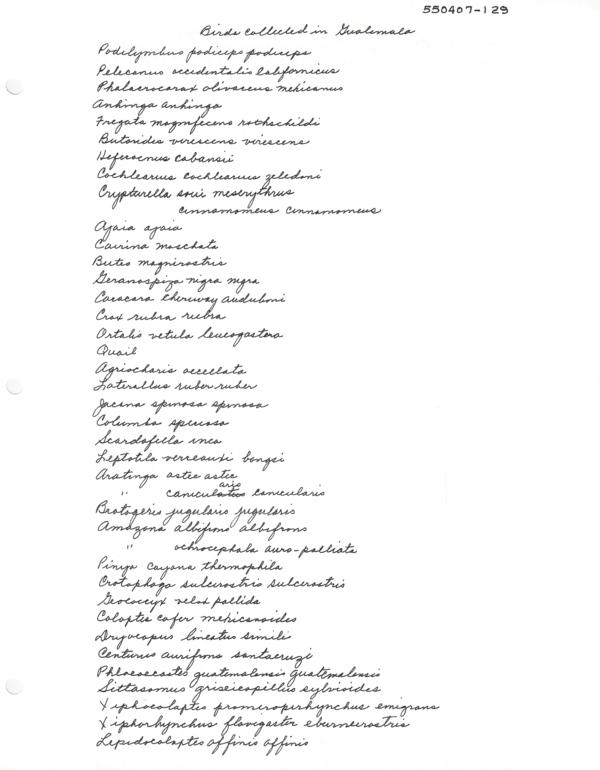 550407-129
Birds collected in Guatemala
Podilymbus podiceps podiceps
Pelecanus occidentalis Californicus
Phalacrocorax olivaceus mexicanus
Anhinga anhinga
Fregata magnificens rothschildi
Butorides virescens virescens
Heterocnus cabansii
Cochlearius cochlearius zeledoni
Crypturella soui meserythrus
cinnamomeus cinnamomeus
Ajaia ajaia
Cairina moschata
Buteo magnirostris
Geranospiza nigra nigra
Caracara cheriway auduboni
Crax rubra rubra
Ortalis vetula leucogastera
Quail
Agriocharis occellata
Laterallus ruber ruber
Jacana spinosa spinosa
Columba speciosa
Scardafella inca
Leptotila verreauxi bangsi
Aratinga astec astec
" canicularis canicularis
Brotogeris jugularis jugularis
Amazona albifrons albifrons
" ochrocephala auro-palliata
Pinya cayana thermophila
Crotophaga sulcirostris sulcirostris
Geococcyx velox pallida
Colaptes cafer mexicanoides
Dryocopus lineatus similis
Centurus aurifrons santacruzi
Phloeoceastes guatemalensis guatemalensis
Sittasomus griseicapillus sylvioides
Xiphocolaptes promeropirhynchus emigrans
Xiphorhynchus flavigaster eburneirostris
Lepidocolaptes affinis affinis